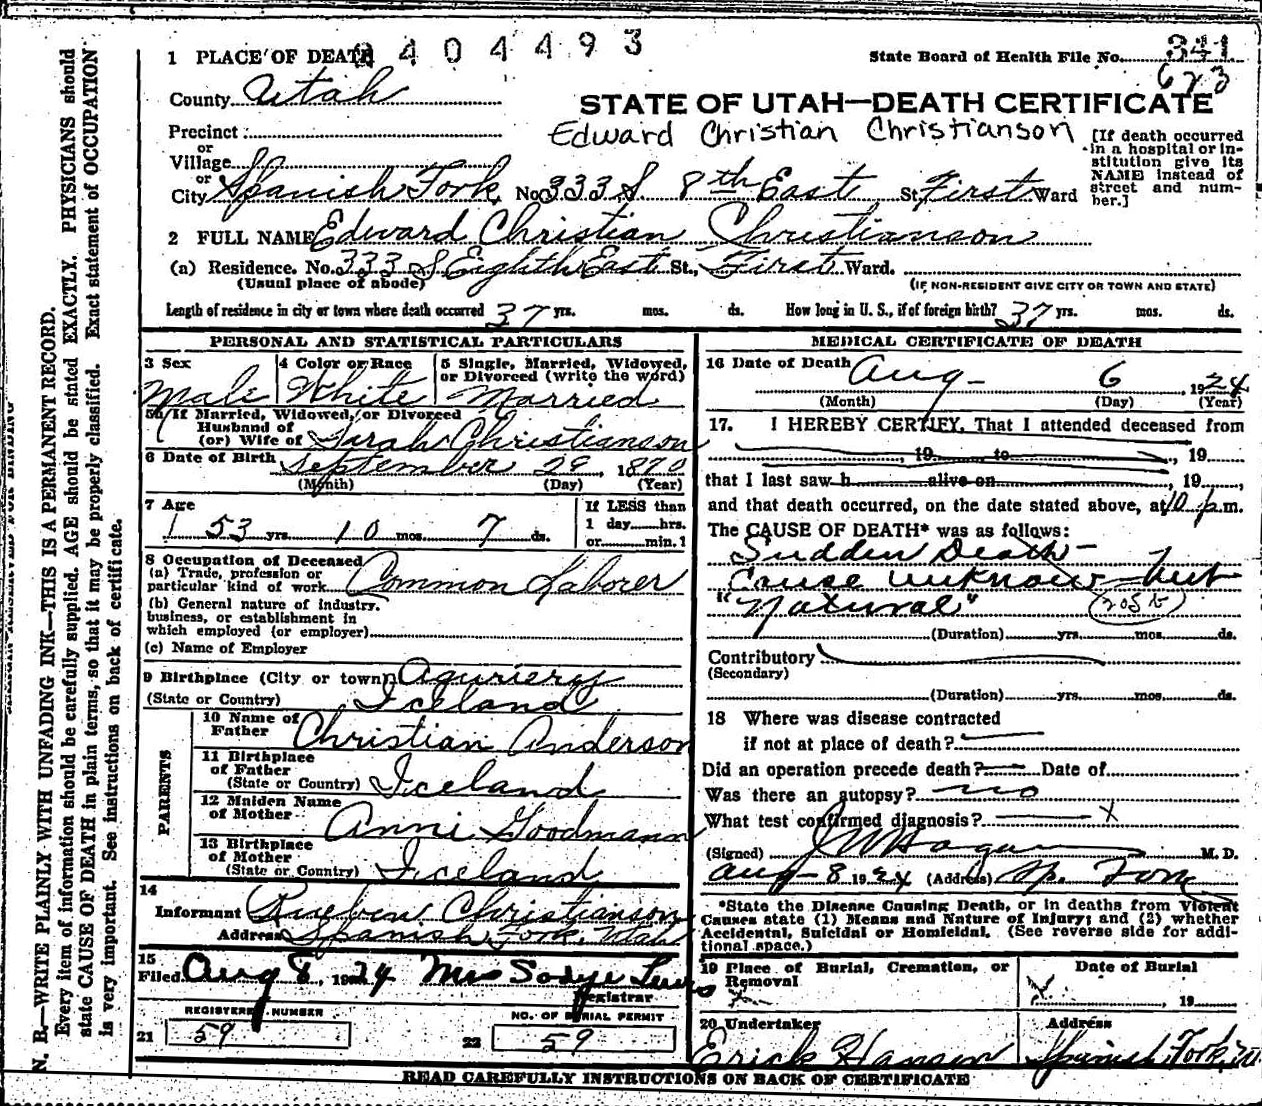 1 PLACE OF DEATH 2404493
State Board of Health File No. 341
County Utah
623
STATE OF UTAH—DEATH CERTIFICATE
Precinct
Edward Christian Christianson
[If death occurred in a hospital or institution give its NAME instead of street and number.]
or
Village
or
City Spanish Fork No. 333 S 8th East St. First Ward
2 FULL NAME Edward Christian Christianson
(a) Residence. No. 333 S Eighth East St., First Ward.
(Usual place of abode) (IF NON-RESIDENT GIVE CITY OR TOWN AND STATE)
Length of residence in city or town where death occurred 37 yrs. mos. ds. How long in U. S., if of foreign birth? 37 yrs. mos. ds.
PERSONAL AND STATISTICAL PARTICULARS
3 Sex
Male
4 Color or Race
White
5 Single, Married, Widowed, or Divorced (write the word)
Married
5a If Married, Widowed, or Divorced
Husband of
(or) Wife of Sarah Christianson
6 Date of Birth September 29, 1870
(Month) (Day) (Year)
7 Age
53 yrs. 10 mos. 7 ds.
If LESS than
1 day......hrs.
or......min.
8 Occupation of Deceased
(a) Trade, profession or
particular kind of work Common Laborer
(b) General nature of industry,
business, or establishment in
which employed (or employer)
(c) Name of Employer
9 Birthplace (City or town)
(State or Country) Iceland
PARENTS
10 Name of
Father Christian Anderson
11 Birthplace
of Father
(State or Country) Iceland
12 Maiden Name
of Mother Anni Goodmann
13 Birthplace
of Mother
(State or Country) Iceland
14
Informant Rueben Christianson
Address Spanish Fork, Utah
15
Filed Aug 8, 1924 Mrs Lewis
Registrar
REGISTERED NUMBER
21 59
NO. OF BURIAL PERMIT
22 59
MEDICAL CERTIFICATE OF DEATH
16 Date of Death Aug- 6 1924
(Month) (Day) (Year)
17. I HEREBY CERTIFY, That I attended deceased from
, 19 to , 19
that I last saw h alive on , 19
and that death occurred, on the date stated above, at 10 p.m.
The CAUSE OF DEATH* was as follows:
Sudden Death -
Cause unknown - but
"Natural" (205 b)
(Duration) yrs. mos. ds.
Contributory
(Secondary)
(Duration) yrs. mos. ds.
18 Where was disease contracted
if not at place of death?
Did an operation precede death? Date of
Was there an autopsy? no
What test confirmed diagnosis? X
(Signed) M. D.
Aug-8 1924 (Address) Sp. Fork
*State the Disease Causing Death, or in deaths from Violent
Causes state (1) Means and Nature of Injury; and (2) whether
Accidental, Suicidal or Homicidal. (See reverse side for additional space.)
19 Place of Burial, Cremation, or
Removal
Date of Burial
X , 19
20 Undertaker
Erick Hansen
Address
Spanish Fork, Ut
READ CAREFULLY INSTRUCTIONS ON BACK OF CERTIFICATE
N. B.—WRITE PLAINLY WITH UNFADING INK—THIS IS A PERMANENT RECORD.
Every item of information should be carefully supplied. AGE should be stated EXACTLY. PHYSICIANS should
state CAUSE OF DEATH in plain terms, so that it may be properly classified. Exact statement of OCCUPATION
is very important. See instructions on back of certificate.